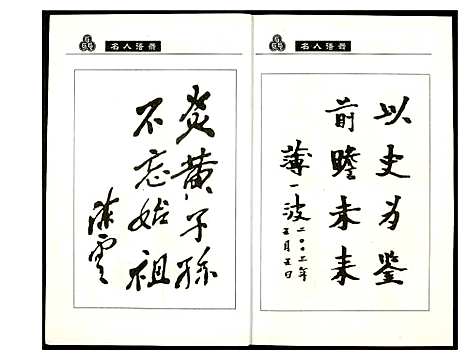 名人墨迹
以史为鉴
前瞻未来
薄一波
二〇〇二年
五月五日
名人墨迹
炎黄子孙
不忘始祖
陈云